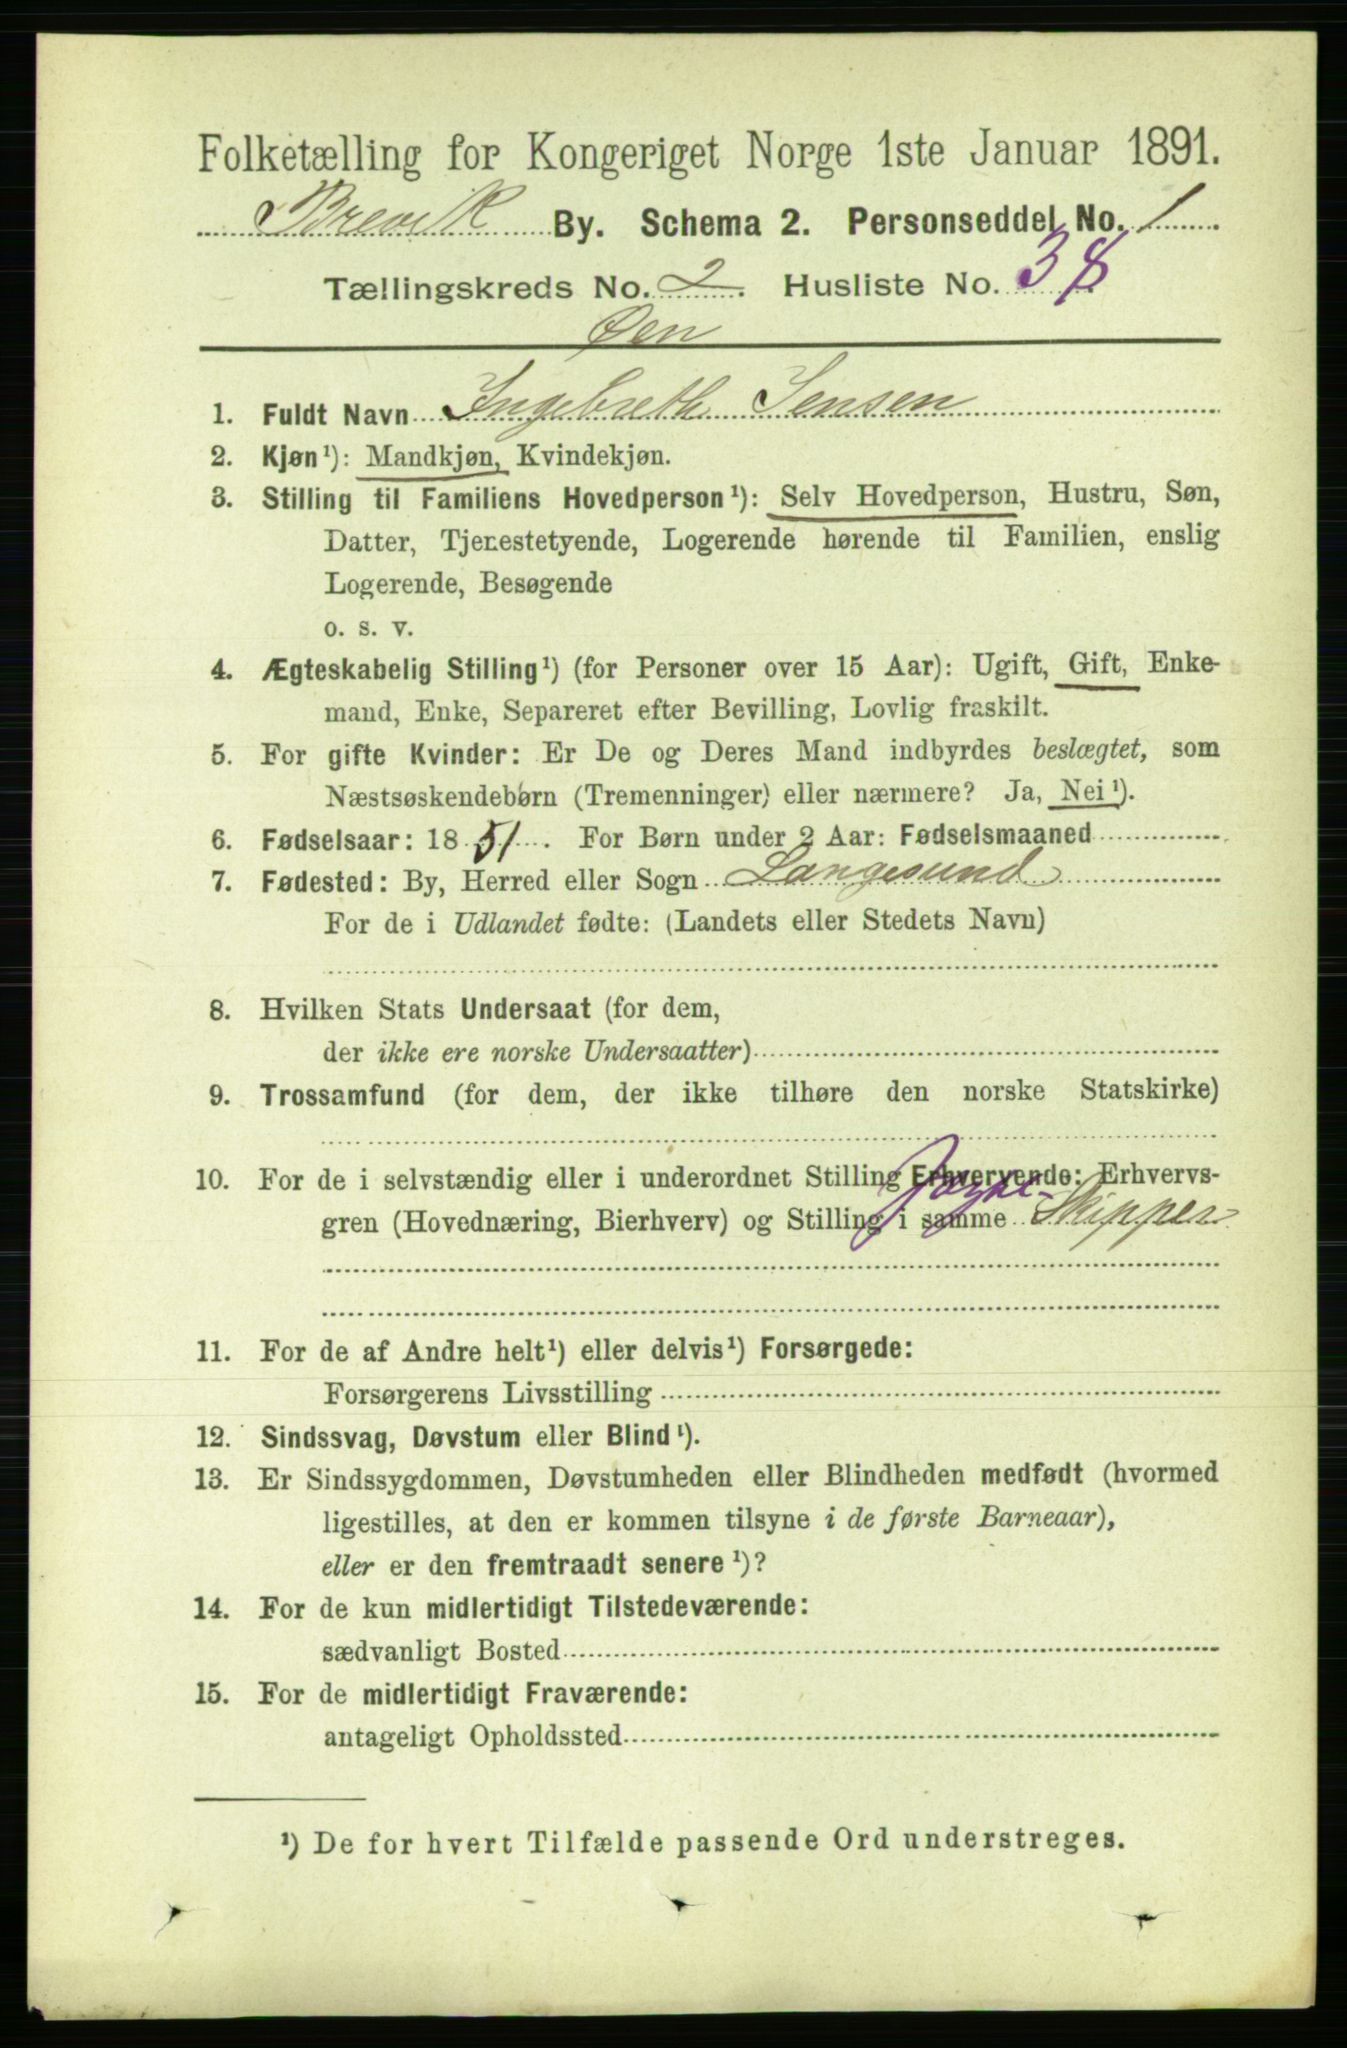 Folketælling for Kongeriget Norge 1ste Januar 1891.
Brevik By. Schema 2. Personseddel No. 1
Tællingskreds No. 2. Husliste No. 38
Øen
1. Fuldt Navn Ingebreth Jensen
2. Kjøn¹): Mandkjøn, Kvindekjøn.
3. Stilling til Familiens Hovedperson¹): Selv Hovedperson, Hustru, Søn,
Datter, Tjenestetyende, Logerende hørende til Familien, enslig
Logerende, Besøgende
o. s. v.
4. Ægteskabelig Stilling¹) (for Personer over 15 Aar): Ugift, Gift, Enke-
mand, Enke, Separeret efter Bevilling, Lovlig fraskilt.
5. For gifte Kvinder: Er De og Deres Mand indbyrdes beslægtet, som
Næstsøskendebørn (Tremenninger) eller nærmere? Ja, Nei¹).
6. Fødselsaar: 1851. For Børn under 2 Aar: Fødselsmaaned
7. Fødested: By, Herred eller Sogn Langesund
For de i Udlandet fødte: (Landets eller Stedets Navn)
8. Hvilken Stats Undersaat (for dem,
der ikke ere norske Undersaatter)
9. Trossamfund (for dem, der ikke tilhøre den norske Statskirke)
10. For de i selvstændig eller i underordnet Stilling Erhvervende: Erhvervs-
gren (Hovednæring, Bierhverv) og Stilling i samme Skipper
11. For de af Andre helt¹) eller delvis¹) Forsørgede:
Forsørgerens Livsstilling
12. Sindssvag, Døvstum eller Blind¹).
13. Er Sindssygdommen, Døvstumheden eller Blindheden medfødt (hvormed
ligestilles, at den er kommen tilsyne i de første Barneaar),
eller er den fremtraadt senere¹)?
14. For de kun midlertidigt Tilstedeværende:
sædvanligt Bosted
15. For de midlertidigt Fraværende:
antageligt Opholdssted
¹) De for hvert Tilfælde passende Ord understreges.